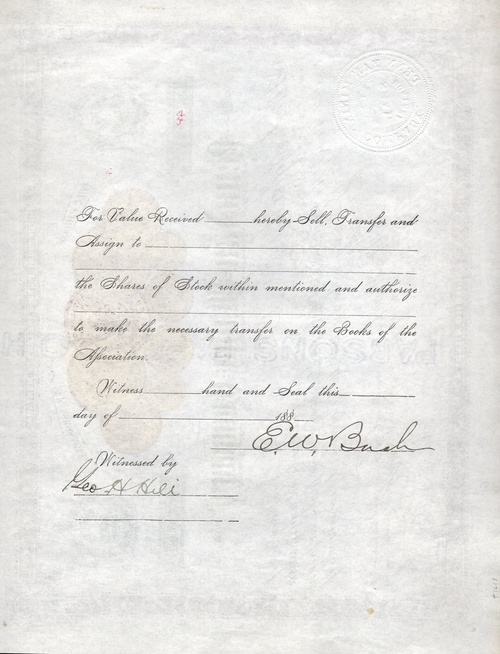 For Value Received ______ hereby Sell, Transfer and
Assign to
the Shares of Stock within mentioned and authorize
to make the necessary transfer on the Books of the
Association.
Witness ______ hand and Seal this ______
day of ______ 188_
E.W. Bush
Witnessed by
Geo. H Hill